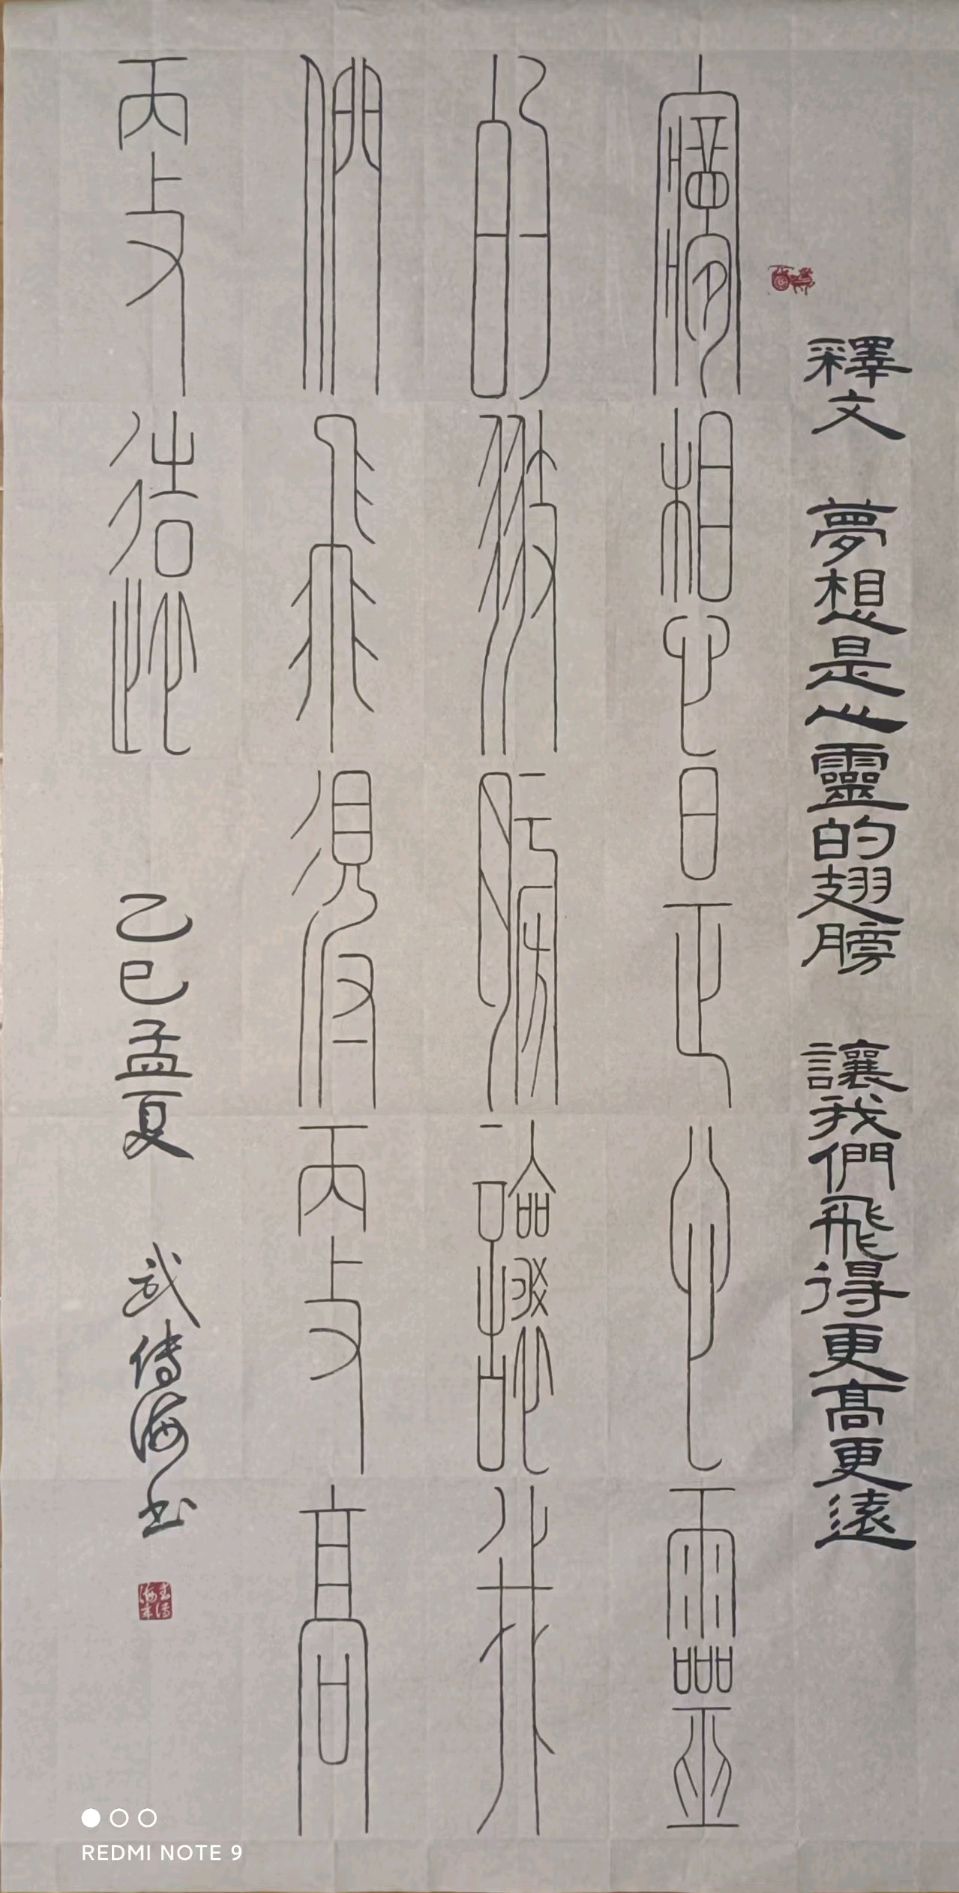 釋文 夢想是心靈的翅膀 讓我們飛得更高更遠
夢想是心靈
的翅膀讓我
們飛得更高
更遠 乙巳孟夏 武传海书
REDMI NOTE 9